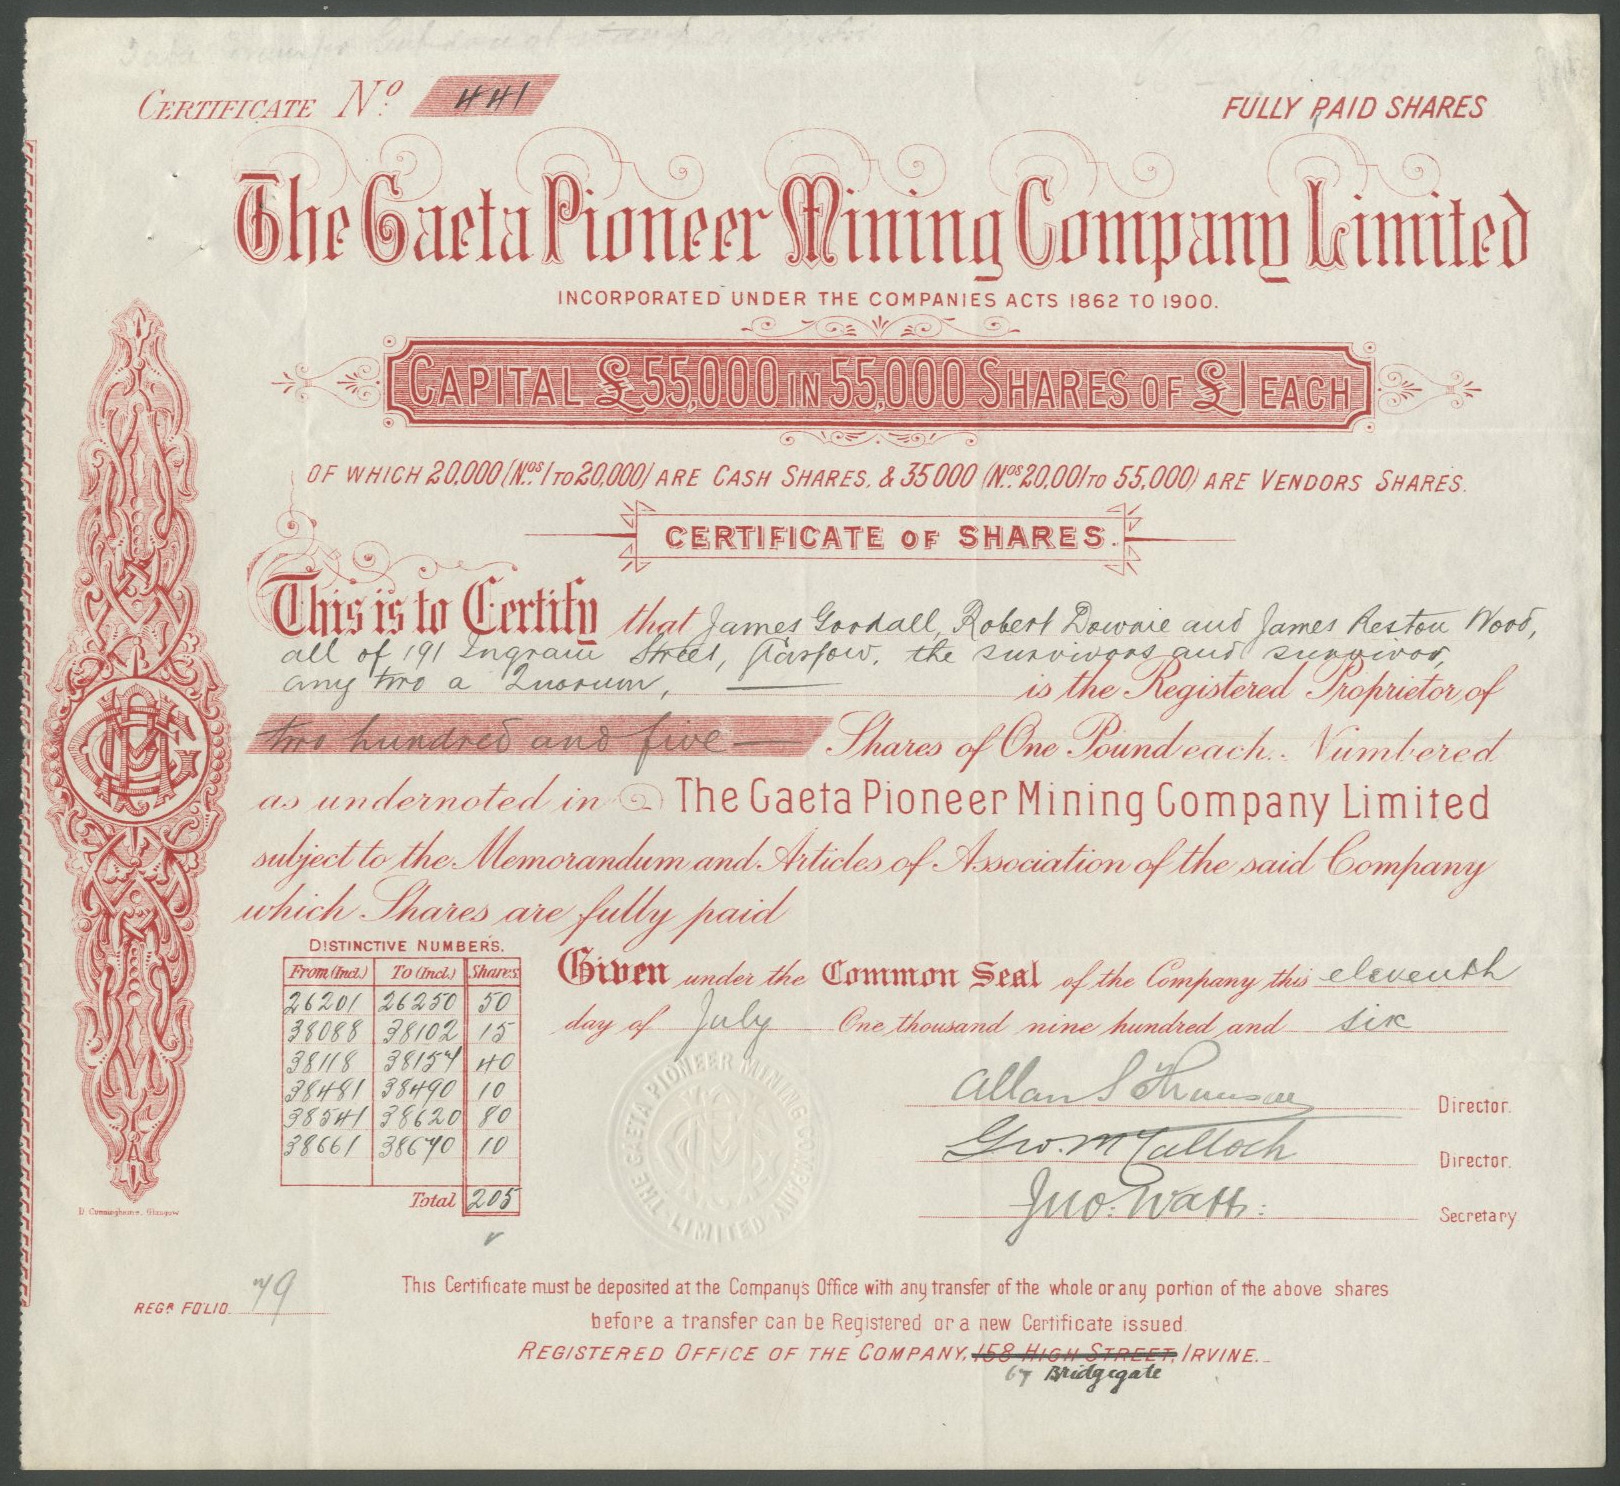 CERTIFICATE No. 441
FULLY PAID SHARES
The Gaeta Pioneer Mining Company Limited
INCORPORATED UNDER THE COMPANIES ACTS 1862 TO 1900.
CAPITAL £55,000 IN 55,000 SHARES OF £1 EACH
OF WHICH 20,000 (Nos. 1 TO 20,000) ARE CASH SHARES, & 35000 (Nos. 20,001 TO 55,000) ARE VENDORS SHARES.
CERTIFICATE OF SHARES.
This is to Certify that James Goodall, Robert Downie and James Reston Wood,
all of 191 Ingram Street, Glasgow, the survivors and survivor,
any two a Quorum, is the Registered Proprietor of
two hundred and five Shares of One Pound each. Numbered
as undernoted in The Gaeta Pioneer Mining Company Limited
subject to the Memorandum and Articles of Association of the said Company
which Shares are fully paid
DISTINCTIVE NUMBERS.
From (Incl.) To (Incl.) Shares
26201 26250 50
38088 38102 15
38118 38157 40
38481 38490 10
38541 38620 80
38661 38670 10
Total 205
Given under the Common Seal of the Company this eleventh
day of July One thousand nine hundred and six
THE GAETA PIONEER MINING COMPANY LIMITED
Allan S Thomson Director.
Geo. McCulloch Director.
Jno. Watt: Secretary
D. Cunninghame, Glasgow
REGR. FOLIO 79
This Certificate must be deposited at the Company's Office with any transfer of the whole or any portion of the above shares
before a transfer can be Registered or a new Certificate issued.
REGISTERED OFFICE OF THE COMPANY, 158 HIGH STREET, IRVINE.
67 Bridgegate